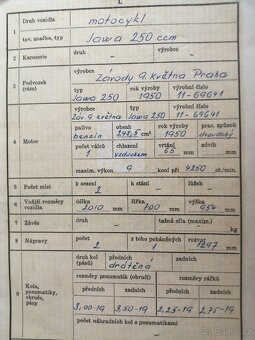 I.
1 Druh vozidla motocykl
tov. značka, typ Jawa 250 ccm
2 Karoserie druh výrobce
výrobce
Závody 9. května Praha
3 Podvozek (rám) typ rok výroby výrobní číslo
Jawa 250 1950 11-69641
výrobce typ výrobní číslo
Záv. 9. května Jawa 250 11-69641
palivo obsah rok výroby prac. způsob
benzin 248,5 cm³ 1950 dvoudobý
4 Motor počet válců chlazení vrtání zdvih
1 vzduchem 65 mm mm
maxim. výkon 9 koní při 4250 ot./min.
5 Počet míst k sezení k stání lůžek
2
6 Vnější rozměry vozidla délka šířka výška
2010 mm 700 mm 954 mm
7 Závěs druh tažná síla (maxim.)
kg
8 Nápravy počet z toho poháněných rozvor
2 1 1297 mm
druh kol (pásů) předních zadních
drátěná
rozměry pneumatik (obručí) rozměry ráfků
9 Kola, pneumatiky, obruče, pásy předních zadních předních zadních
3,00-19 3,50-19 2,25-19 2,75-19
počet náhradních kol s pneumatikami